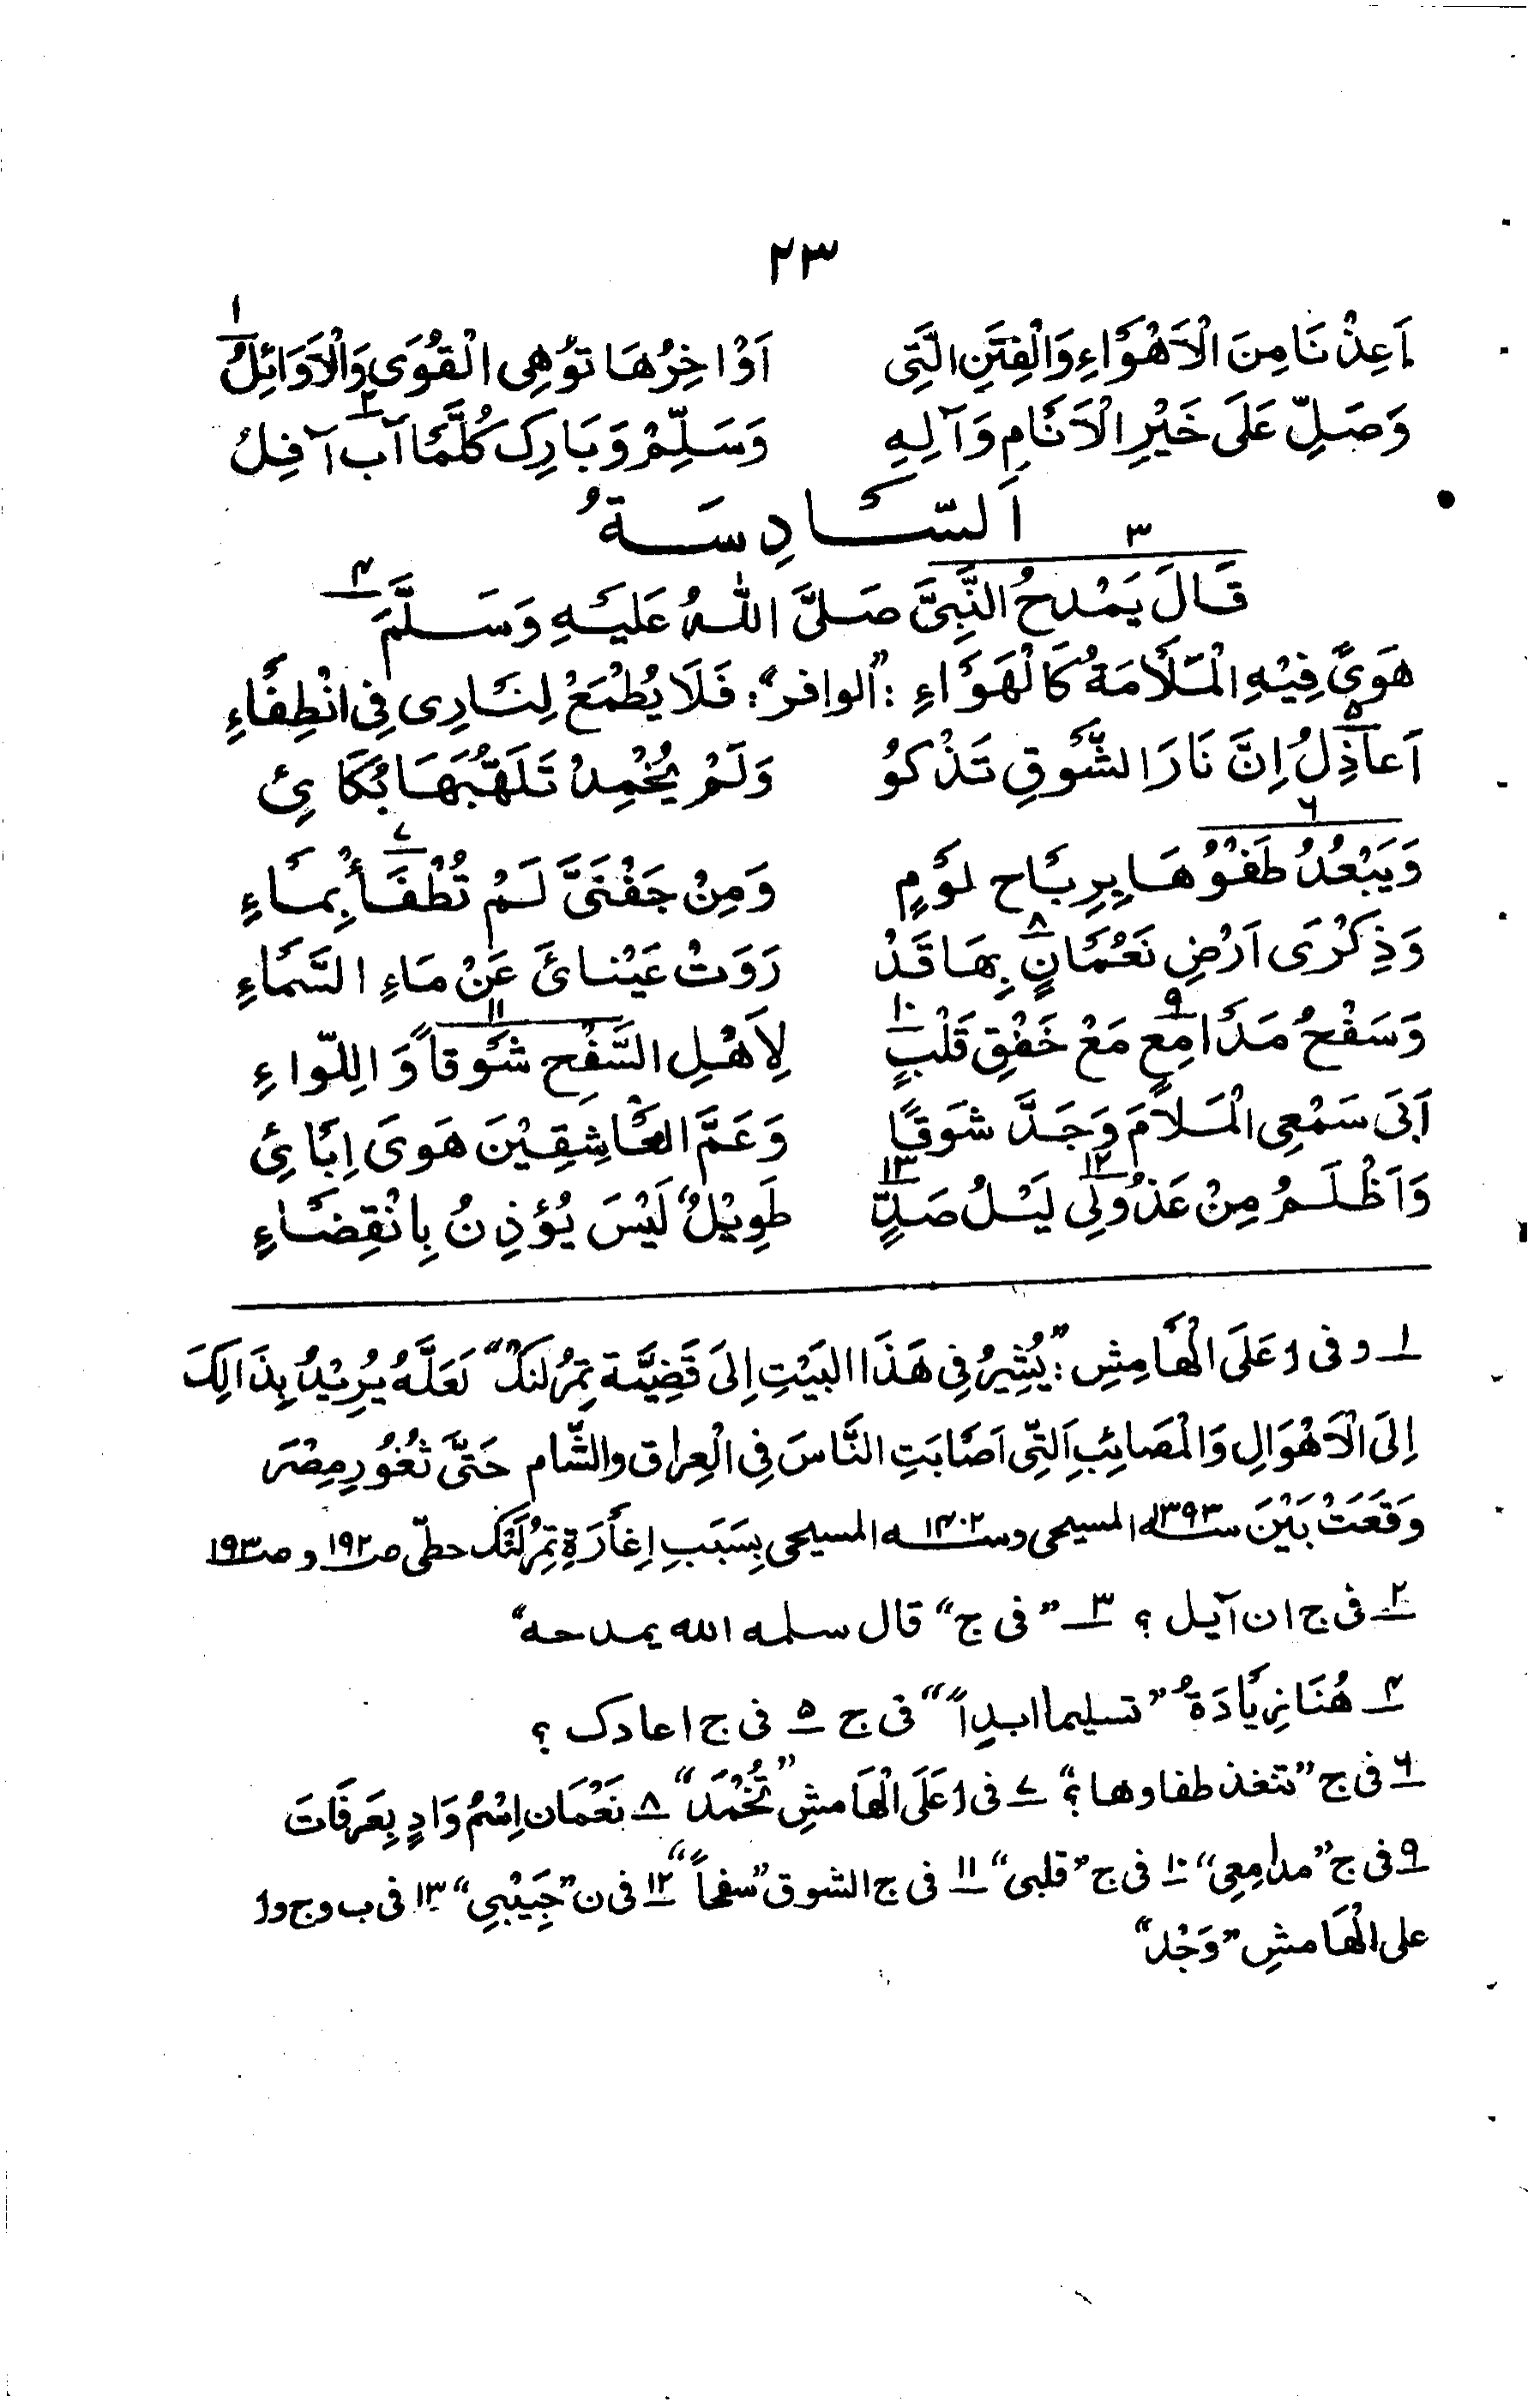 ٢٣
اَعِذْنَا مِنَ الْاَهْوَاءِ وَالْفِتَنِ الَّتِی اَوْاخِرُهَا تُوْهِی الْقُوَى وَالْاَوَائِلُ ١
وَصَلِّ عَلَى خَيْرِ الْاَنَامِ وَآلِهِ وَسَلِّمْ وَبَارِك كُلَّمَا ٢ آب آفِلُ
اَلسَّادِسَةُ
٣ قَالَ يَمْدحُ النَّبِیَّ صَلىَّ اللهُ عَلَيْهِ وَسَلَّمَ ٤
هَوَىً فِيْهِ الْمَلَامَةُ كَالْهَوَاءِ :"الوافر": فَلَا يُطْمَعْ لِنَارِى فِی انْطِفَاءِ
اَعاذِلُ ٥ اِنَّ نَارَ الشَّوقِ تَذْكوُ وَلَمْ يُخْمِدْ تَلَهُّبَهَا بُكَائِ
٦ وَيَبْعُدُ طَفْؤُهَا بِرِيَاح لَومٍ وَمِنْ جَفْنَیَّ لَمْ تُطْفَأْ ٧ بِمَاءِ
وَذِكْرَى اَرْضِ نَعْمَانٍ ٨ بِهَا قَدْ رَوَتْ عَيْنائَ عَنْ مَاءِ السَّمَاءِ
وَسَفْحُ مَدَامِعٍ ٩ مَعْ خَفْقِ قَلْبٍ ١٠ لِاَهْلِ السَّفْحِ شَوقاً ١١ وَاللِّوَاءِ
اَبَى سَمْعِی الْمَلَامَ وَجَدَّ شَوَقًا وَعَمَّ الْعَاشِقِيْنَ هَوىَ اِبَائِي
وَاَظْلَمُ مِنْ عَذُولِی ١٢ لَيْلُ صَدٍّ ١٣ طَوِيْلٌ لَيْسَ يُؤذِنُ بِانْقِضَاءِ
١ـ و فی ا عَلَى الْهَامِشِ : "يُشِيرُ فِی هَذَا البَيْتِ اِلىَ قَضِيَّة تِمُرْلَنَكْ" لَعَلَّهُ يُرِيْدُ بِذَالِكَ
اِلىَ الْاَهْوَالِ وَالْمَصَائِبِ اَلتِّی اَصَابَتِ النَّاسَ فِی الْعِراق والشّام حَتَّى ثُغُورِ مِصْرَ
وَقَعَتْ بَيْنَ سنـه ١٣٩٣ المسيحی و سنـه ١٤٠٢ المسيحی بِسَبَبِ اِغَارَةِ تِمُرْلَنَك حطّی صـ ١٩٢ و صـ ١٩٣
٢ـ فی ج ان آيل ؟ ٣ـ "فی ج" قال سلمه الله يمدحه"
٤ـ هُنَا زِيَادَةُ "تسليما ابداً" فی ج ٥ـ فی ج اعادک ؟
٦ـ فی ج "تتغذ طفاوها؟" ٧ـ فی ا عَلَى الْهَامشِ "تُخْمَدَ" ٨ـ نَعْمَان اِسْمُ وَادٍ بِعَرفَاتَ
٩ـ فی ج "مدامِعِی" ١٠ـ فی ج "قلبی" ١١ـ فی ج الشوق "سفحاً" ١٢ـ فی ن "جَيْبِي" ١٣ـ فی ب و ج و ا
على الْهَامشِ "وَجْد"